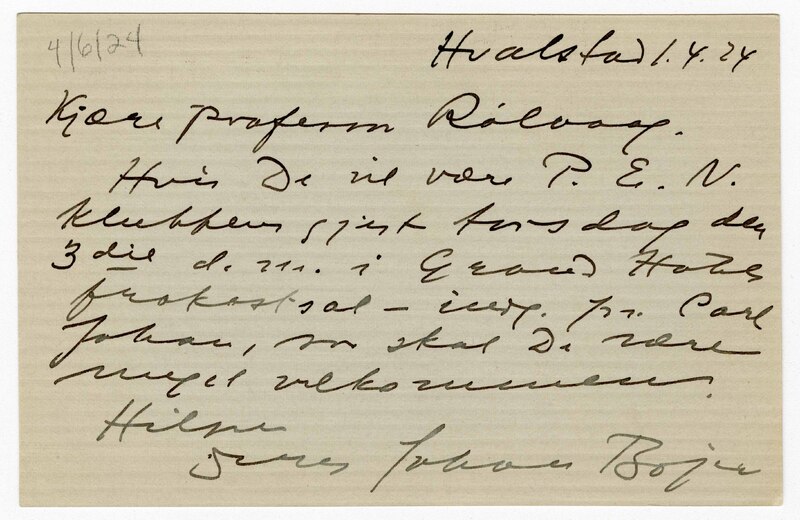 4/6/24
Hvalstad 1.4.24
Kjære professor Rölvaag.
Hvis De vil være P. E. N.
klubbens gjest torsdag den
3die d. m. i Grand Hotels
frokostsal – indg. fr. Carl
Johan, saa skal De være
meget velkommen.
Hilsen
Deres Johan Bojer